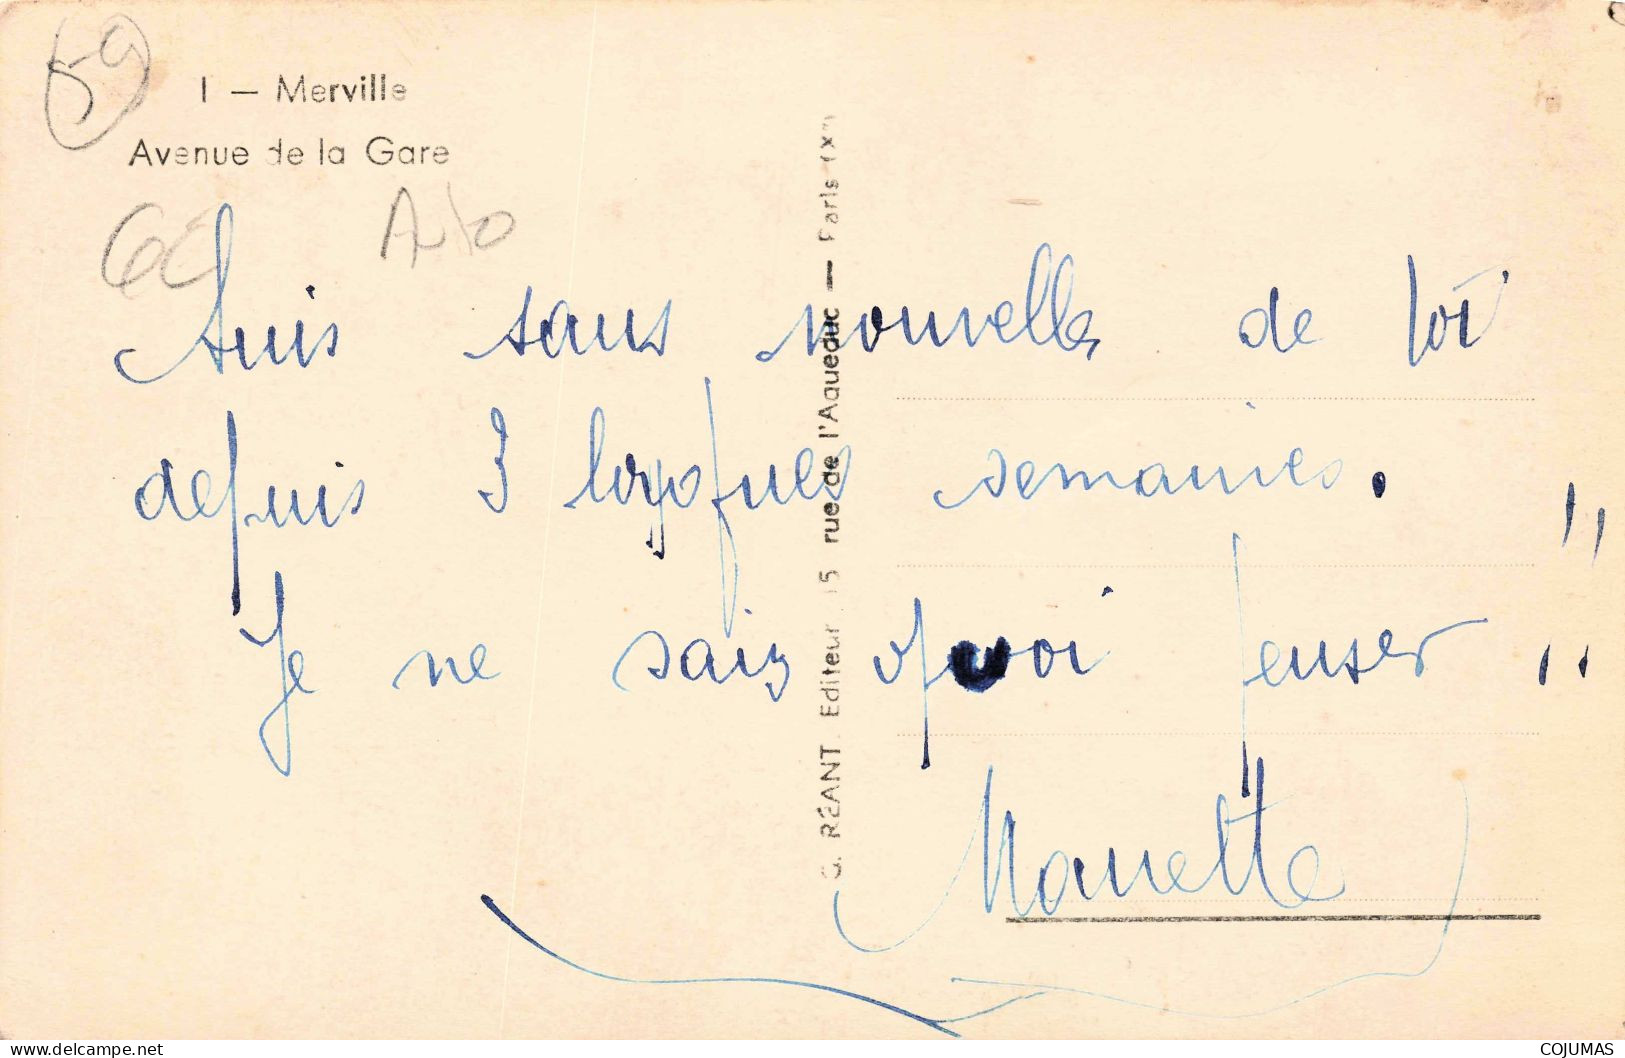 59
1 — Merville
Avenue de la Gare
Auto
Suis sans nouvelles de toi
depuis 3 longues semaines.
Je ne sais quoi penser !!
Nanette
G. RÉANT Editeur 15 rue de l'Aqueduc — Paris (Xe)
www.delcampe.net
COJUMAS